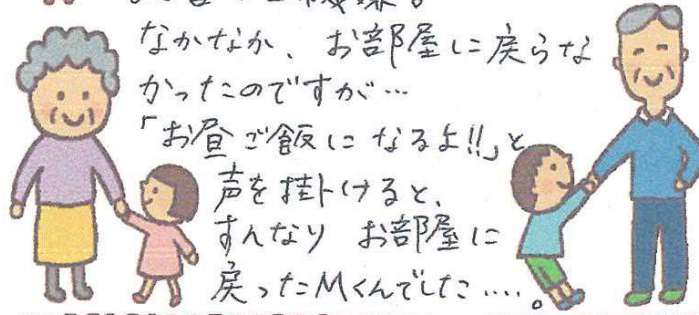 なかなか、お部屋に戻らな
かったのですが…
「お昼ご飯になるよ!!」と
声を掛けると、
すんなり お部屋に
戻ったMくんでした…。